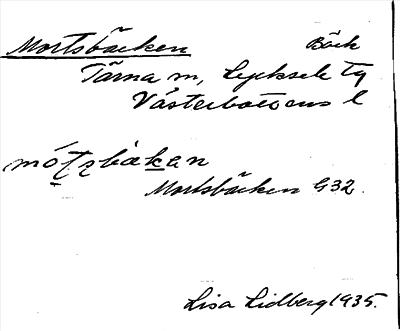 Mortsbäcken Bäck
Tärna sn, Lycksele tg
Västerbottens l
Mortsbäcken G32.
Lisa Lidberg 1935.